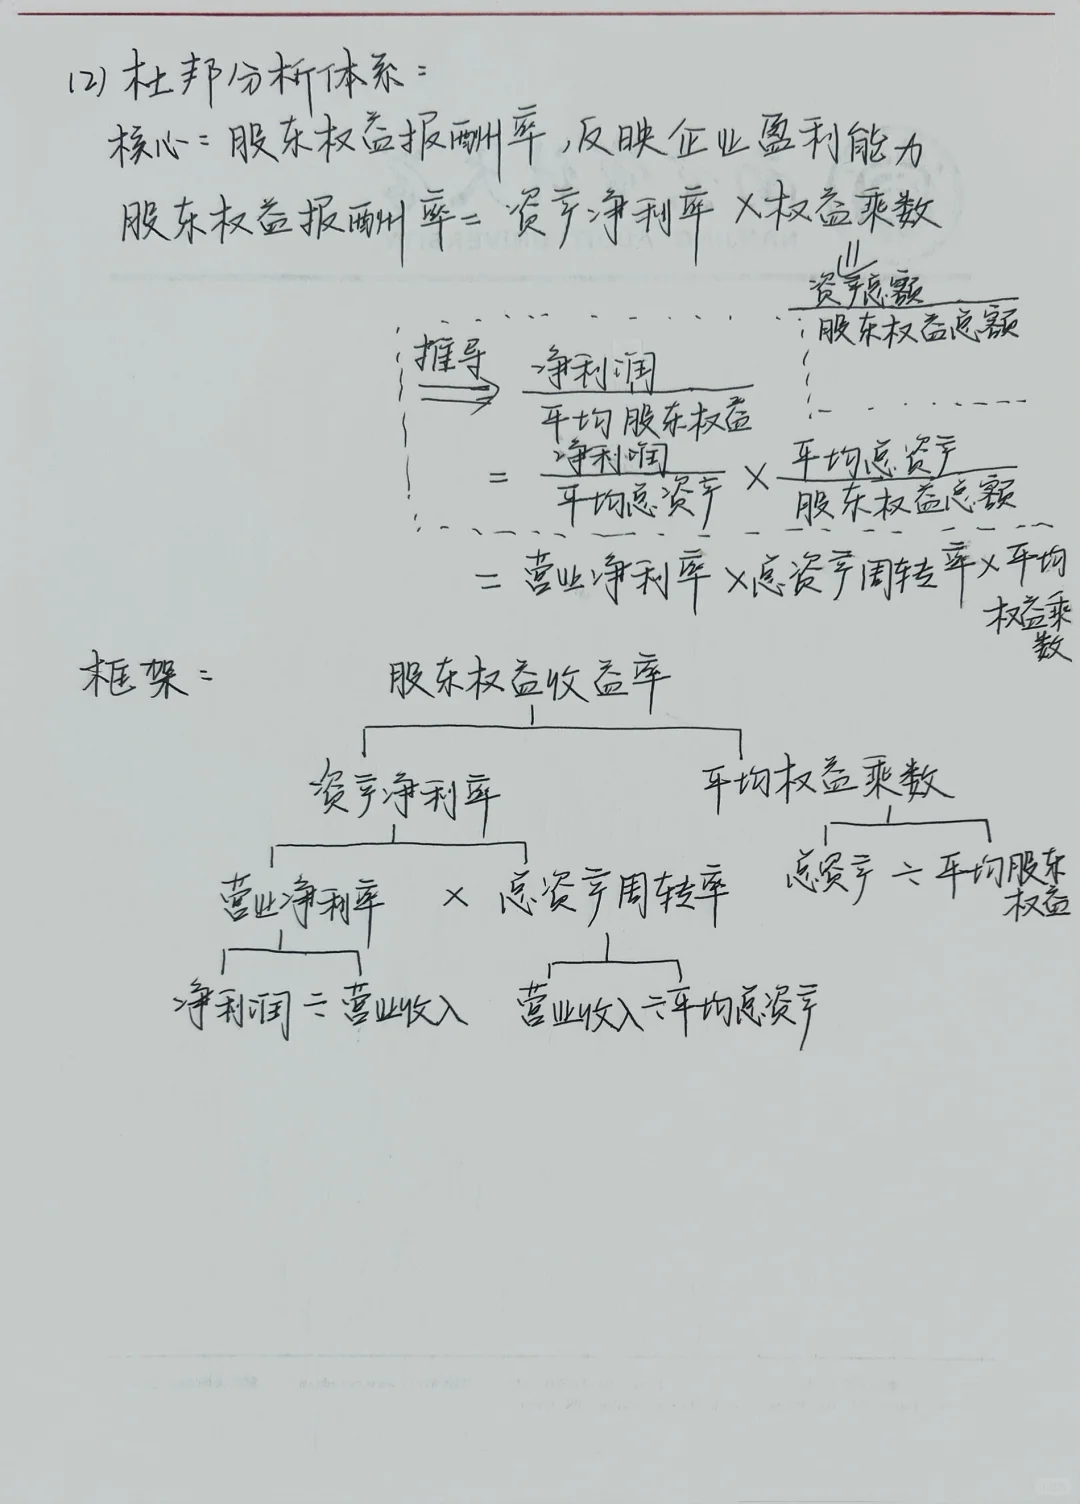 (2) 杜邦分析体系:
核心: 股东权益报酬率,反映企业盈利能力
股东权益报酬率= 资产净利率 × 权益乘数
资产总额
股东权益总额
推导
净利润
平均股东权益
= 净利润 × 平均总资产
平均总资产 股东权益总额
= 营业净利率 × 总资产周转率 × 平均
权益乘
数
框架:
股东权益收益率
资产净利率 平均权益乘数
营业净利率 × 总资产周转率 总资产 ÷ 平均股东
权益
净利润 ÷ 营业收入 营业收入 ÷ 平均总资产
NANJING AUDIT UNIVERSITY